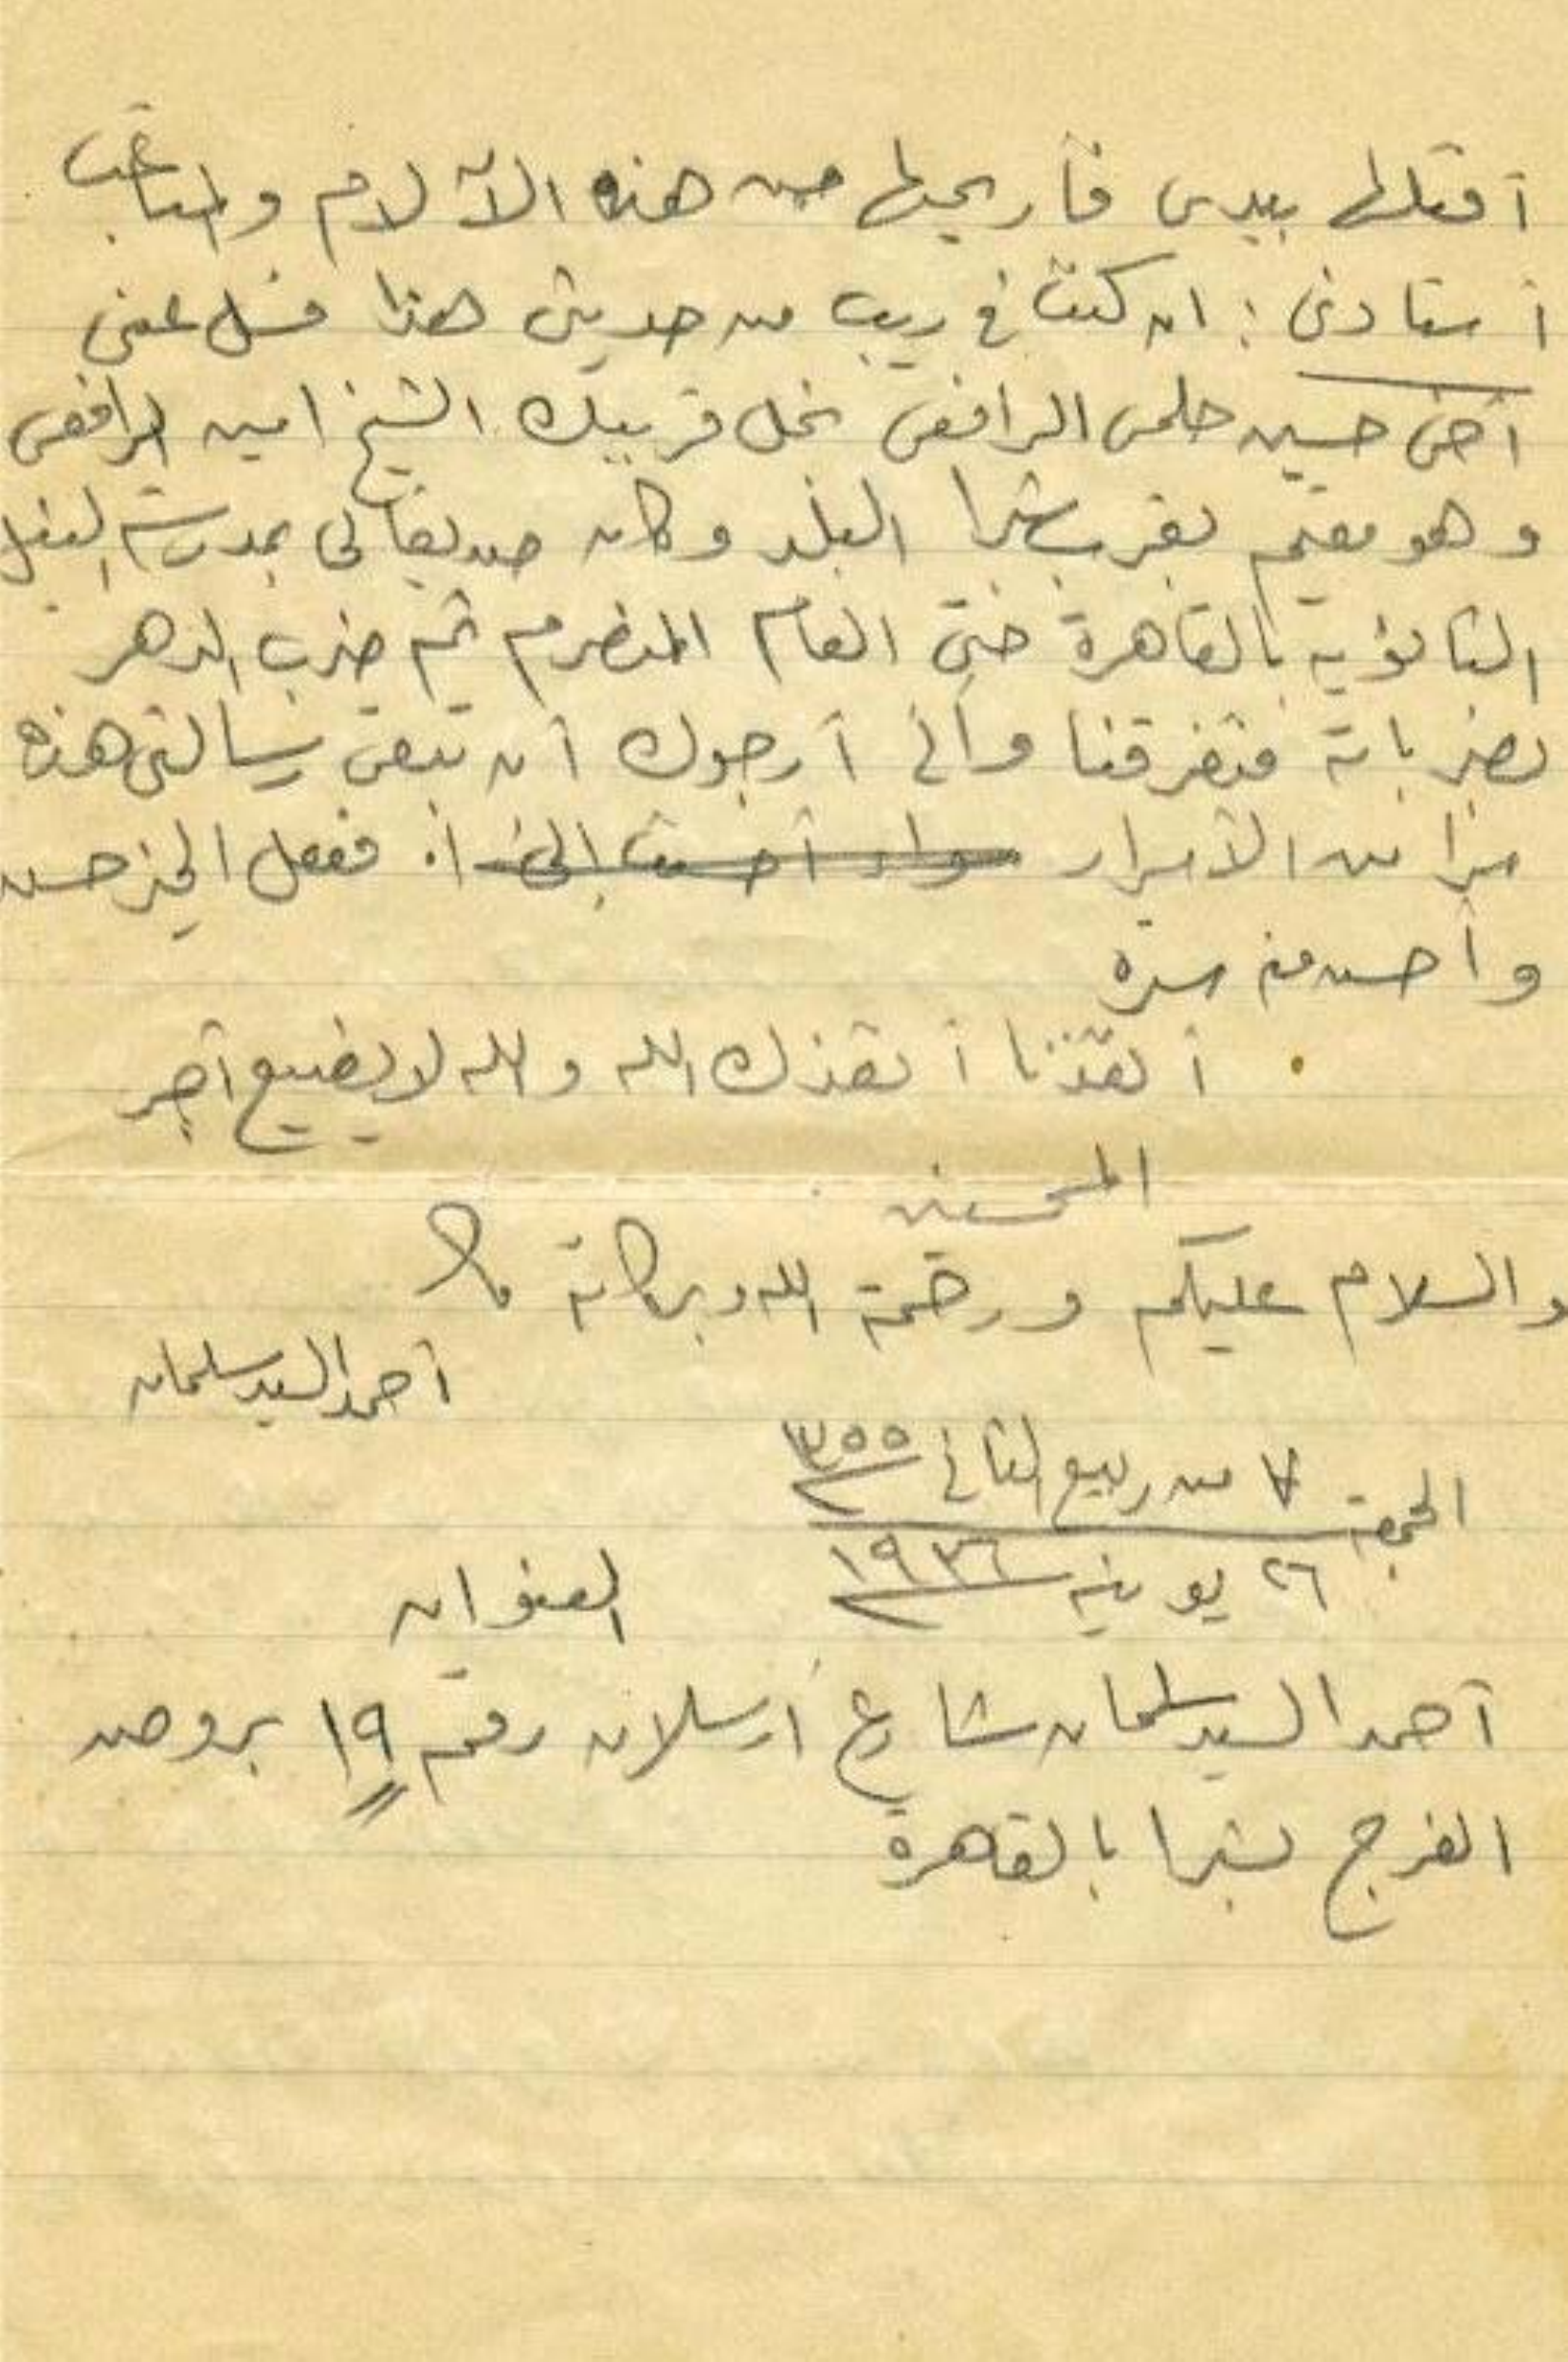 أقتلها بيدى فأريحها من هذه الآلام والمتاعب
أستاذى : ان كنت فى ريب من حديثى هذا فسل عنى
أخى حسين حلمى الرافعى نجل قريبك الشيخ امين الرافعى
وهو مقيم بقرب شبرا البلد وكان صديقا لى بمدرسة النيل
الثانوية بالقاهرة حتى العام المنصرم ثم ضرب الدهر
بضرباته فتفرقنا وانى أرجوك أن تبقى رسالتى هذه
سرا من الأسرار ففعل الخير حسن
وأحسن منه سره
أنقذنا أنقذك الله والله لا يضيع أجر
المحسنين
والسلام عليكم ورحمة الله وبركاته
أحمد السيد سلمان
الجمعة ٧ من ربيع الثانى ١٣٥٥
٢٦ يونيه ١٩٣٦
العنوان
أحمد السيد سلمان شارع أرسلان رقم ١٩ بروض
الفرج بشبرا بالقاهرة